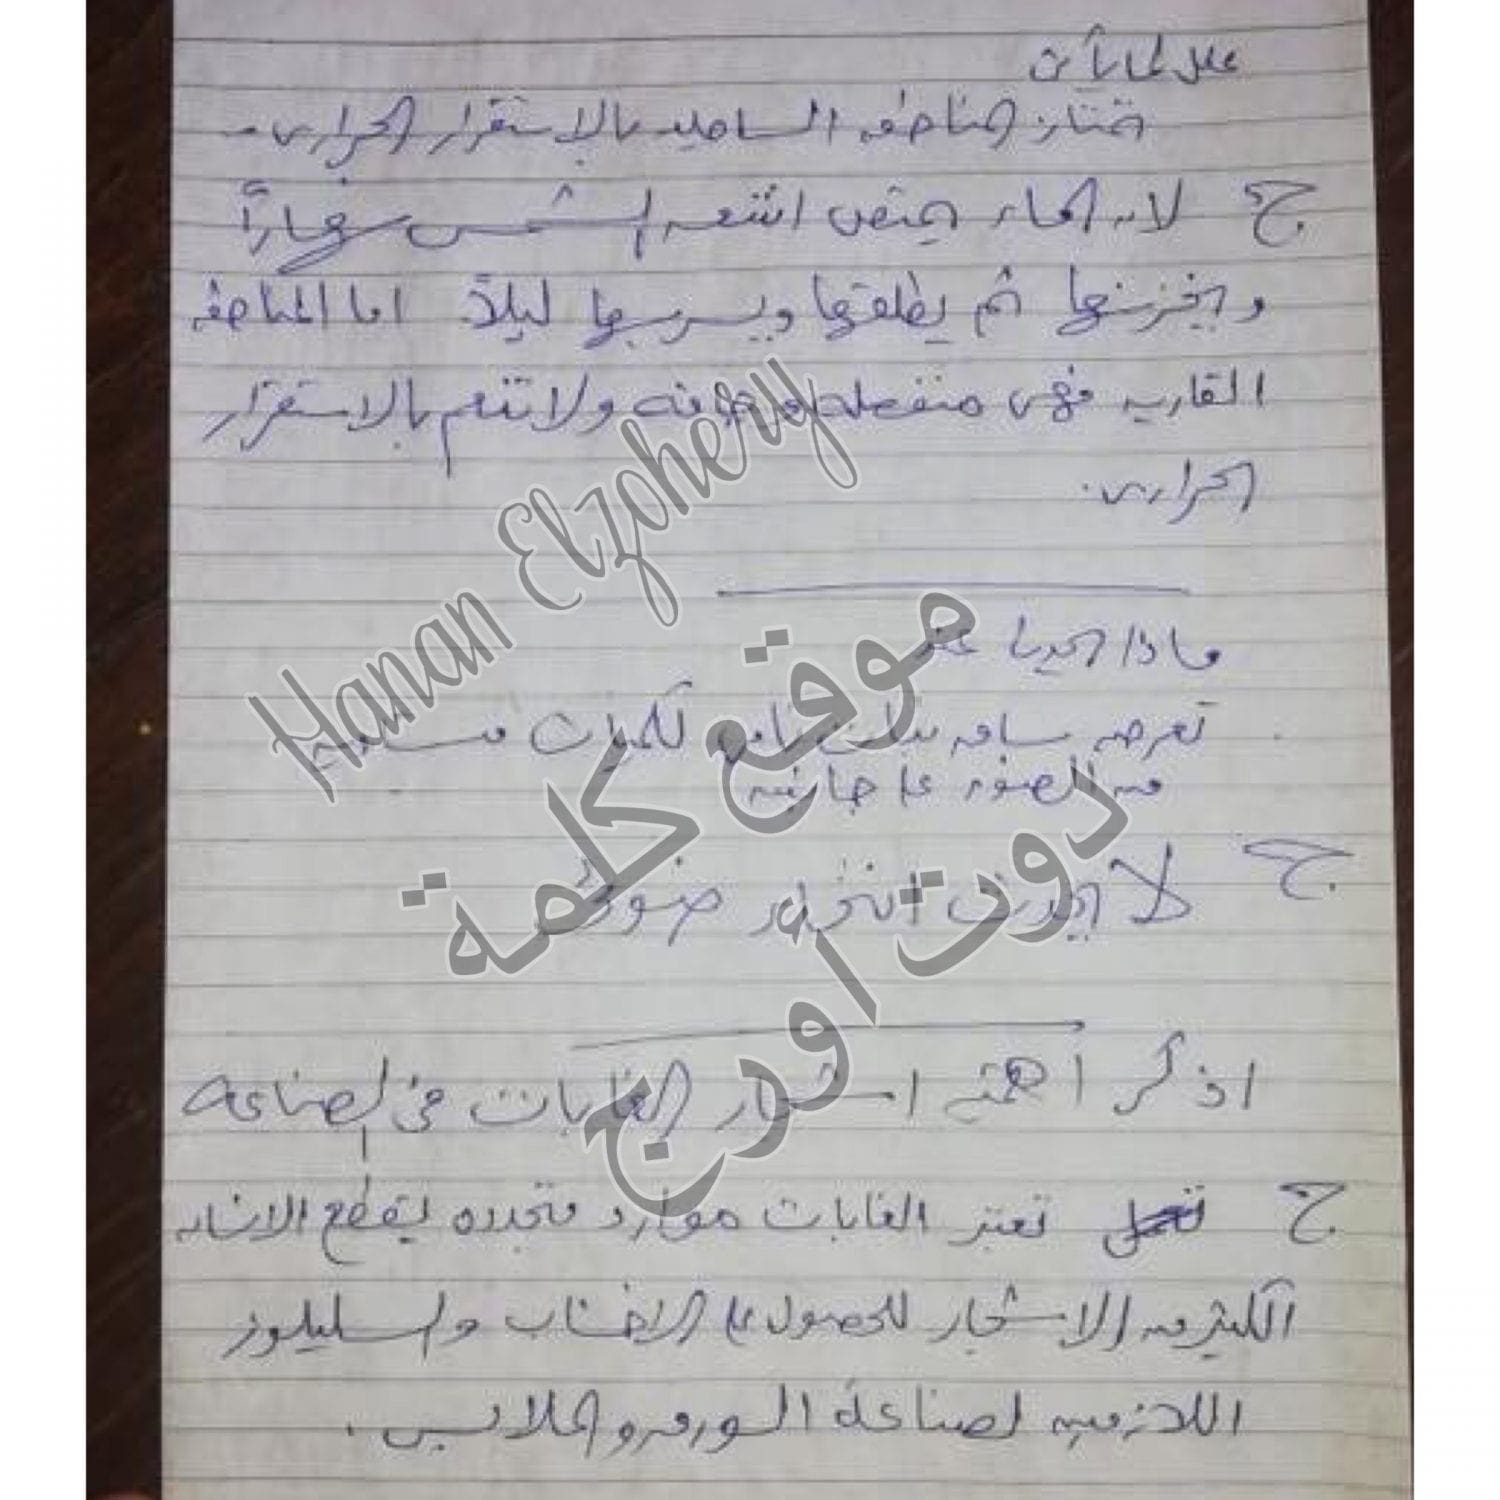 علل لما يأتى
تمتاز المناطق الساحليه بالاستقرار الحرارى
ج لان الماء يمتص اشعه الشمس نهاراً
ويخزنها ثم يطلقها ويسربها ليلاً اما المناطق
القاريه فهى منفصله ولا تنعم بالاستقرار
الحرارى.
ماذا يحدث عند
تعرض ساق نبات نامى لكميات متساويه
من الضوء على جانبيه
ج لا يحدث انتحاء ضوئى
اذكر أهمية اشجار الغابات فى الصناعه
ج تعتبر الغابات موارد متجدده يقطع الانسان
الكثير من الاشجار للحصول على الاخشاب والسليلوز
اللازمين لصناعة الورق والملابس.
Hanan Elzohery
موقع كلمة
دوت أورج